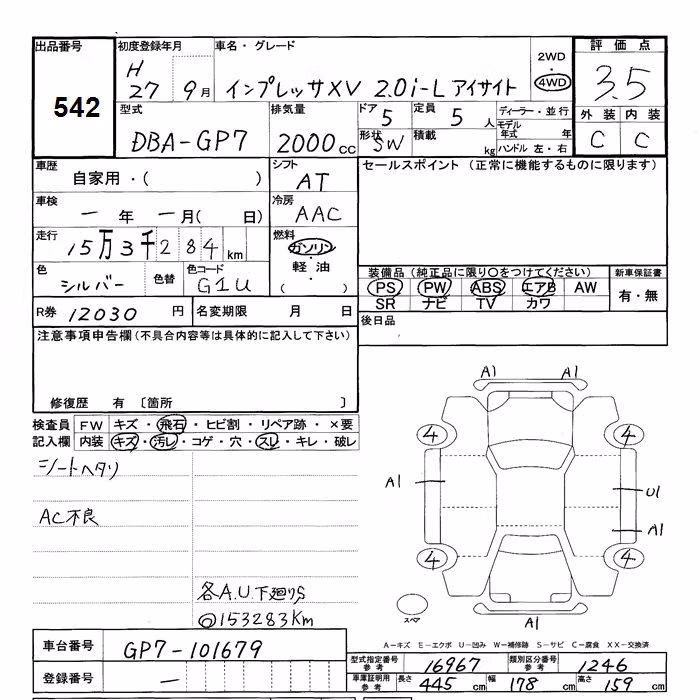 出品番号 初度登録年月 車名・グレード 2WD 評価点
542 H 27 9月 インプレッサXV 2.0i-L アイサイト 4WD 3.5
型式 排気量 ドア 定員 ディーラー・並行 外装 内装
DBA-GP7 2000cc 5 5人 モデル年式 年 C C
形状 SW 積載 kg ハンドル 左・右
車歴 自家用・( ) シフト AT セールスポイント (正常に機能するものに限ります)
車検 一年 一月( 日) 冷房 AAC
走行 15万3千284km 燃料 ガソリン・軽油・( )
色 シルバー 色替 色コード G1U
装備品 (純正品に限り○をつけてください) 新車保証書
PS PW ABS エアB AW 有・無
SR ナビ TV カワ
R券 12030円 名変期限 月 日 後日品
注意事項申告欄(不具合内容等は具体的に記入して下さい)
修復歴 有 〔箇所 〕
検査員記入欄 FW キズ・飛石・ヒビ割・リペア跡・×要
内装 キズ・汚レ・コゲ・穴・スレ・キレ・破レ
シートヘタリ
AC不良
各A.U.下廻りS
◎153283Km
A1 A1
4 4
A1 U1
A1
4 4
スペア A1
A-キズ E-エクボ U-凹み W-補修跡 S-サビ C-腐食 XX-交換済
車台番号 GP7-101679
登録番号 一
型式指定番号参考 16967 類別区分番号参考 1246
車庫証明用参考 長さ 445cm 幅 178cm 高さ 159cm